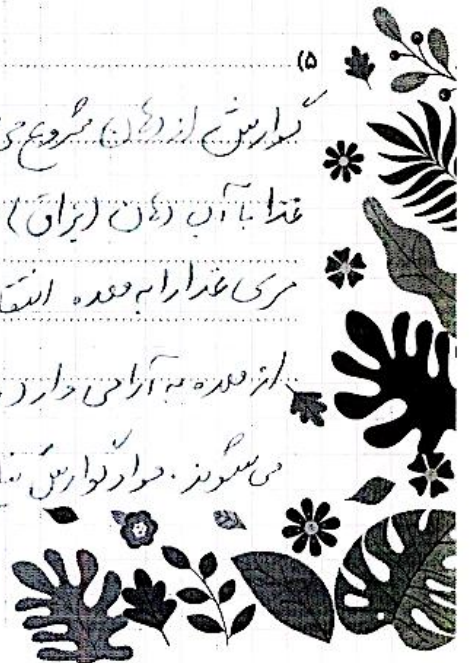 (۵
گوارش از دهان شروع می
غذا با آب دهان (بزاق)
مری غذا را به معده انتقا
از معده به آرامی وارد
می‌شوند. مواد گوارش